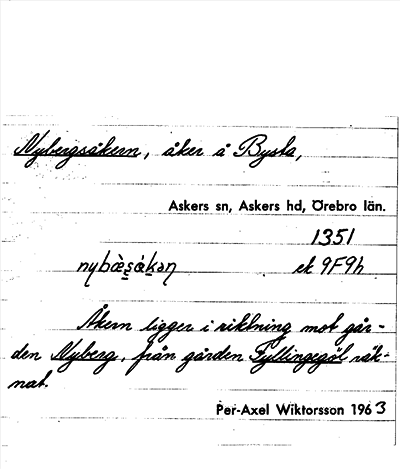 Nybergsåkern, åker å Bysta,
Askers sn, Askers hd, Örebro län.
1351
nybæ̀ʂåkəɳ ek 9F9h
Åkern ligger i riktning mot går-
den Nyberg, från gården Fyllingegöl räk-
nat.
Per-Axel Wiktorsson 1963